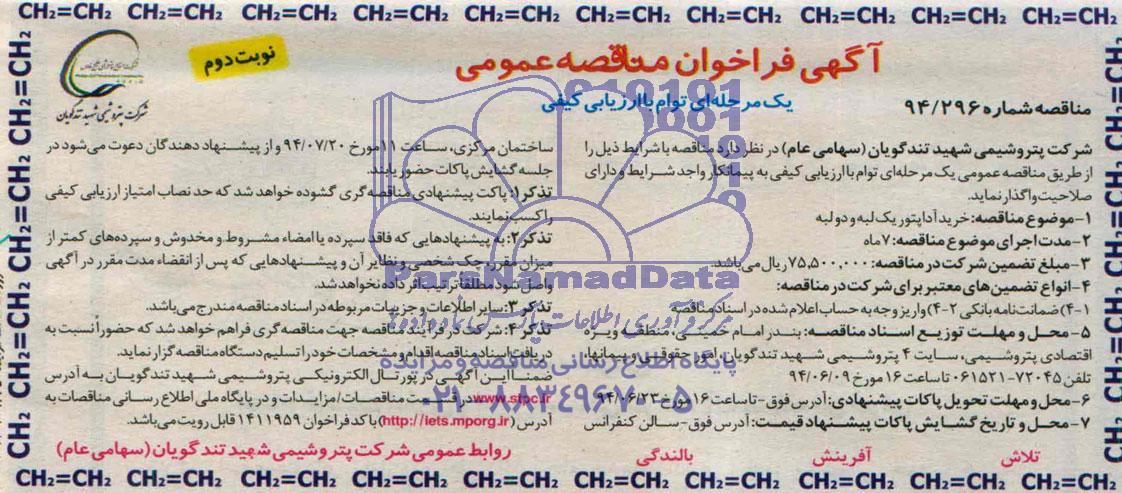 CH₂=CH₂ CH₂=CH₂ CH₂=CH₂ CH₂=CH₂ CH₂=CH₂ CH₂=CH₂ CH₂=CH₂ CH₂=CH₂ CH₂=CH₂ CH₂=CH₂
آگهی فراخوان مناقصه عمومی
نوبت دوم
یک مرحله‌ای توام با ارزیابی کیفی
مناقصه شماره ۹۴/۲۹۶
شرکت پتروشیمی شهید تندگویان
شرکت پتروشیمی شهید تندگویان (سهامی عام) در نظر دارد مناقصه با شرایط ذیل را
از طریق مناقصه عمومی یک مرحله‌ای توام با ارزیابی کیفی به پیمانکار واجد شرایط و دارای
صلاحیت واگذار نماید.
۱-موضوع مناقصه: خرید آداپتور یک لبه و دو لبه
۲-مدت اجرای موضوع مناقصه: ۷ماه
۳-مبلغ تضمین شرکت در مناقصه: ۷۵,۵۰۰,۰۰۰ ریال می‌باشد.
۴-انواع تضمین‌های معتبر برای شرکت در مناقصه:
۴-۱) ضمانت نامه بانکی ۴-۲) واریز وجه به حساب اعلام شده در اسناد مناقصه
۵-محل و مهلت توزیع اسناد مناقصه: بندر امام خمینی، منطقه ویژه
اقتصادی پتروشیمی، سایت ۴ پتروشیمی شهید تندگویان، امور حقوقی و پیمانها
تلفن ۷۲۰۴۵-۰۶۱۵۲۱ تا ساعت ۱۶ مورخ ۹۴/۰۶/۰۹
۶-محل و مهلت تحویل پاکات پیشنهادی: آدرس فوق-تا ساعت ۱۶ مورخ ۹۴/۰۶/۲۳
۷-محل و تاریخ گشایش پاکات پیشنهاد قیمت: آدرس فوق-سالن کنفرانس
ساختمان مرکزی، ساعت ۱۱ مورخ ۹۴/۰۷/۲۰ و از پیشنهاد دهندگان دعوت می‌شود در
جلسه گشایش پاکات حضور یابند.
تذکر۱: پاکت پیشنهادی مناقصه‌گری گشوده خواهد شد که حد نصاب امتیاز ارزیابی کیفی
را کسب نمایند.
تذکر۲: به پیشنهادهایی که فاقد سپرده یا امضاء مشروط و مخدوش و سپرده‌های کمتر از
میزان مقرر، چک شخصی و نظایر آن و پیشنهادهایی که پس از انقضاء مدت مقرر در آگهی
واصل شود مطلقا ترتیب اثر داده نخواهد شد.
تذکر ۳: سایر اطلاعات و جزییات مربوطه در اسناد مناقصه مندرج می‌باشد.
تذکر ۴: شرکت در فرآیند مناقصه جهت مناقصه گری فراهم خواهد شد که حضوراً نسبت به
دریافت اسناد مناقصه اقدام و مشخصات خود را تسلیم دستگاه مناقصه گزار نماید.
ضمنا این آگهی در پورتال الکترونیکی پتروشیمی شهید تندگویان به آدرس
www.stpc.ir در قسمت مناقصات/مزایدات و در پایگاه ملی اطلاع رسانی مناقصات به
آدرس (http://iets.mporg.ir) با کد فراخوان ۱۴۱۱۹۵۹ قابل رویت می‌باشد.
تلاش آفرینش بالندگی
روابط عمومی شرکت پتروشیمی شهید تندگویان (سهامی عام)
ParsNamadData
پایگاه اطلاع رسانی مناقصه و مزایده
۰۲۱-۸۸۳۴۹۶۷۰-۵
CH₂=CH₂ CH₂=CH₂ CH₂=CH₂ CH₂=CH₂ CH₂=CH₂ CH₂=CH₂ CH₂=CH₂ CH₂=CH₂ CH₂=CH₂ CH₂=CH₂